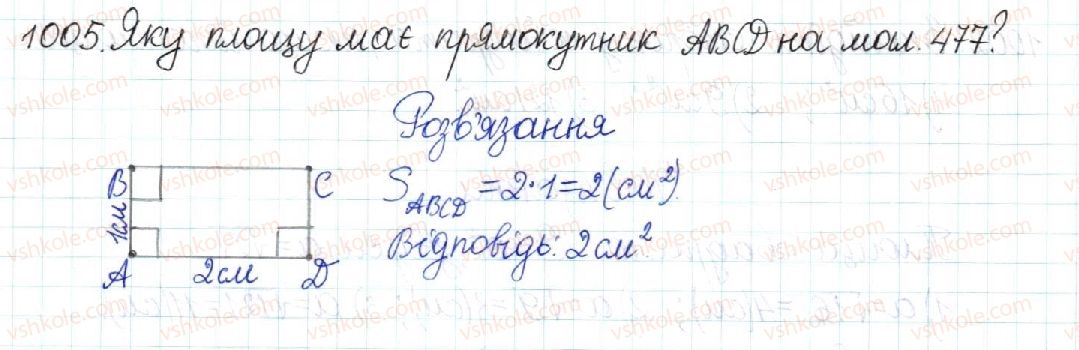 1005. Яку площу має прямокутник ABCD на мал. 477?
Розв'язання
B C
1см
A 2см D
S ABCD = 2·1=2(см²).
Відповідь: 2см².
vshkole.com